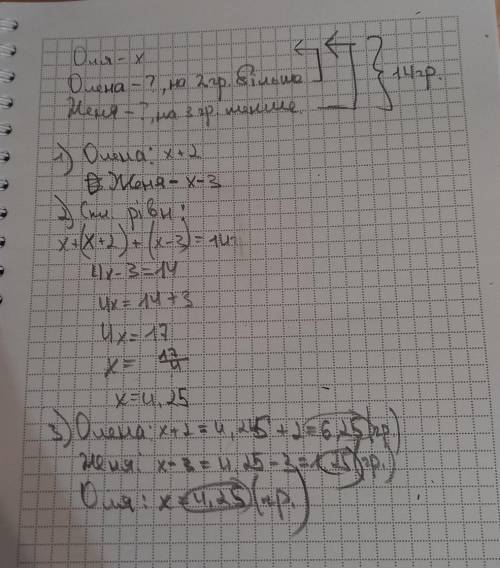 Оля - x
Олена - ?, на 2 гр. більше
Женя - ?, на 3 гр. менше
14 гр.
1) Олена: x+2
Женя - x-3
2) Скл. рівн:
x+(x+2)+(x-3)=14
4x-3=14
4x=14+3
4x=17
x= 17/4
x=4,25
3) Олена: x+2=4,25+2=6,25 (гр.)
Женя: x-3=4,25-3=1,25 (гр.)
Оля: x=4,25 (гр.)